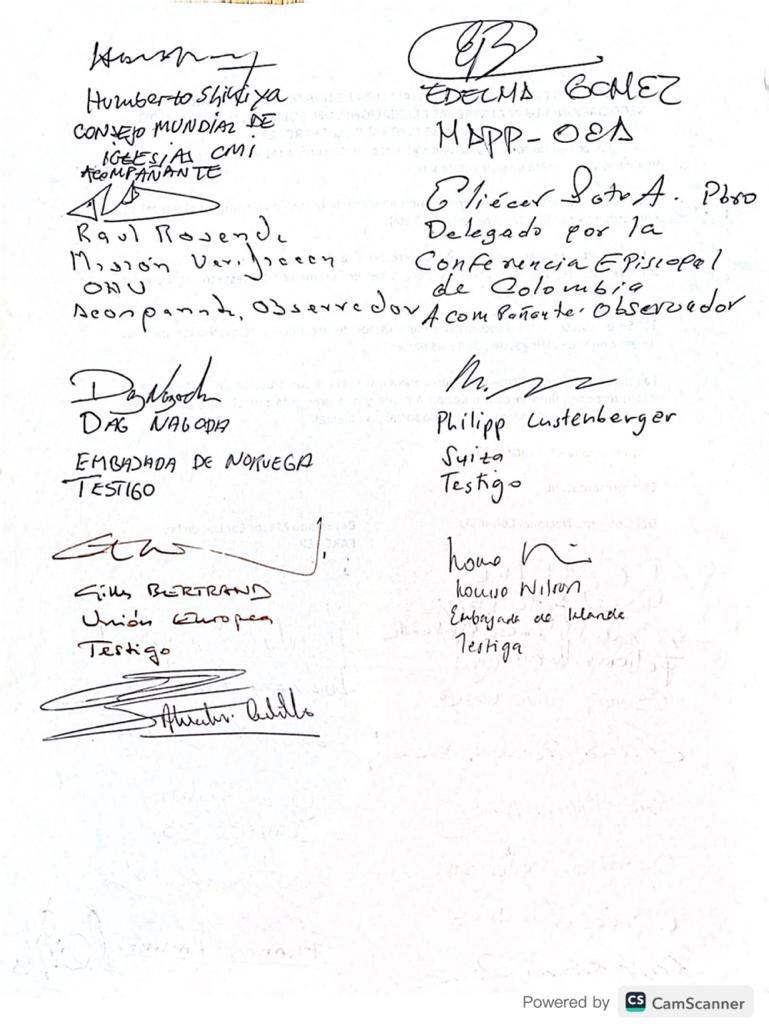 Humberto Shikiya
CONSEJO MUNDIAL DE
IGLESIAS CMI
ACOMPAÑANTE
EDELMA GOMEZ
MAPP-OEA
Raul Rosende
Misión Verificación
ONU
Acompañante, Observador
Eliécer Soto A. Pbro
Delegado por la
Conferencia Episcopal
de Colombia
Acompañante. Observador
DAG NAGODA
EMBAJADA DE NORUEGA
TESTIGO
Philipp Lustenberger
Suiza
Testigo
Gilles BERTRAND
Unión Europea
Testigo
Louise Wilson
Embajada de Irlanda
Testiga
Powered by CS CamScanner